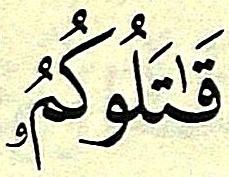 قَٰتَلُوكُمُۥ